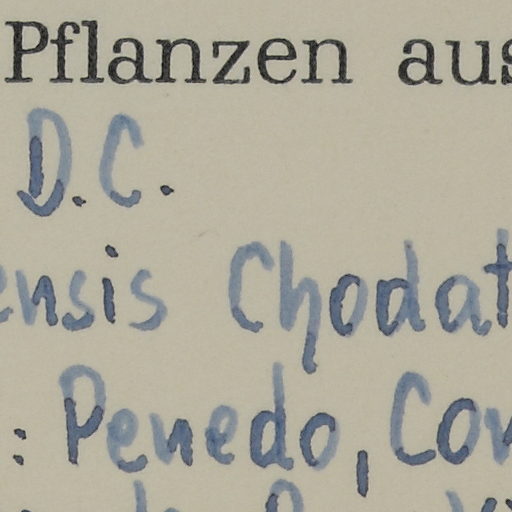 Pflanzen aus
D.C.
ensis Chodat
: Penedo, Cor